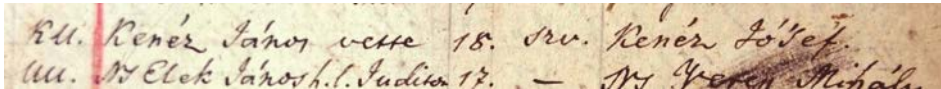 Kenéz János vette 18. szv. Kenéz Jósef.
Ns Elek János h. l. Judit 17. — Ns Veres Mihály